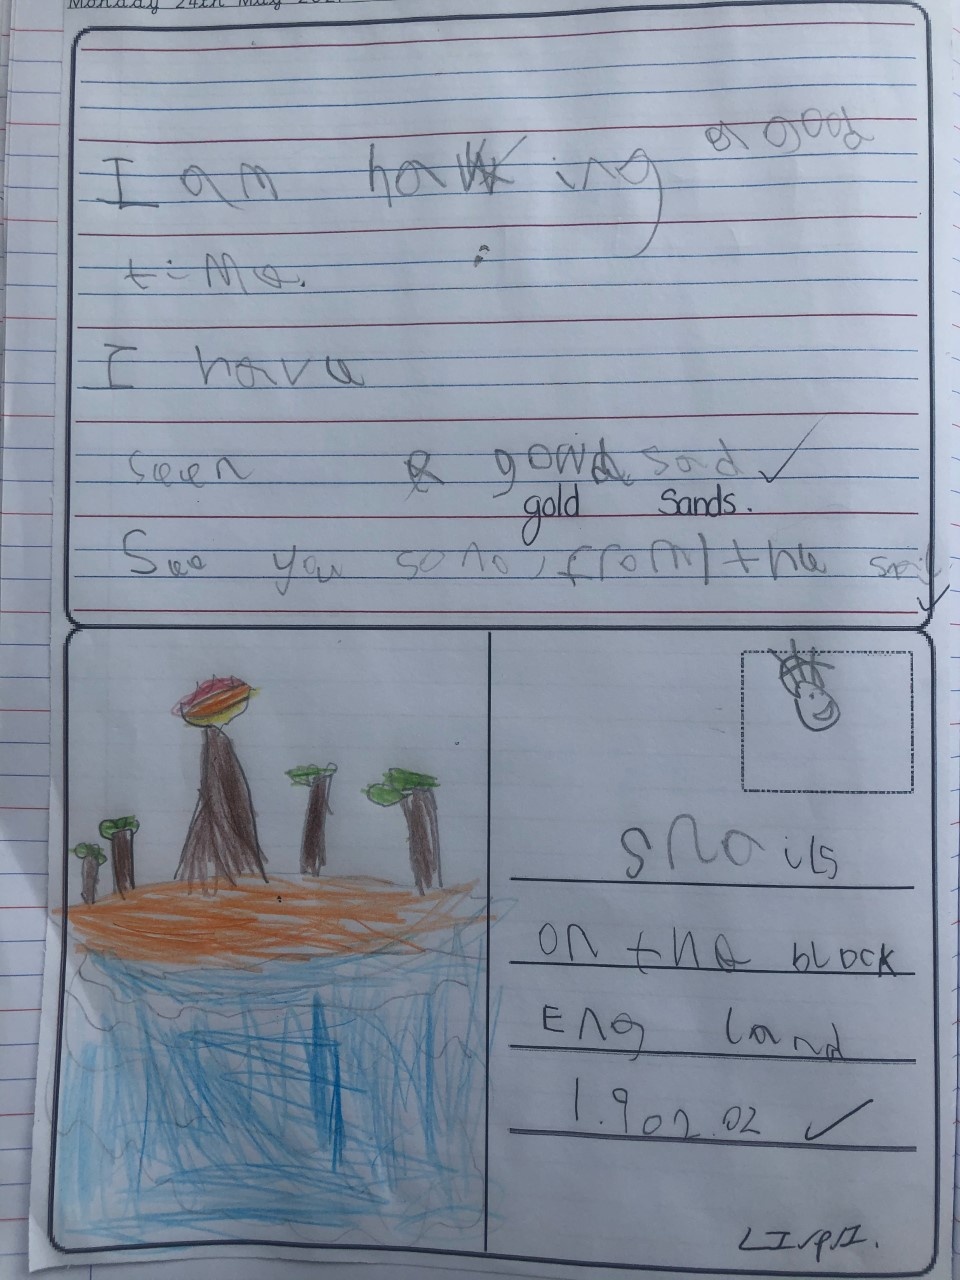 Monday 24th May 202
a good
I am having
time.
I have
seen a gowd sad ✓
gold sands.
See you sono, from the snil
snails
on the block
Eng land
1.902.02 ✓